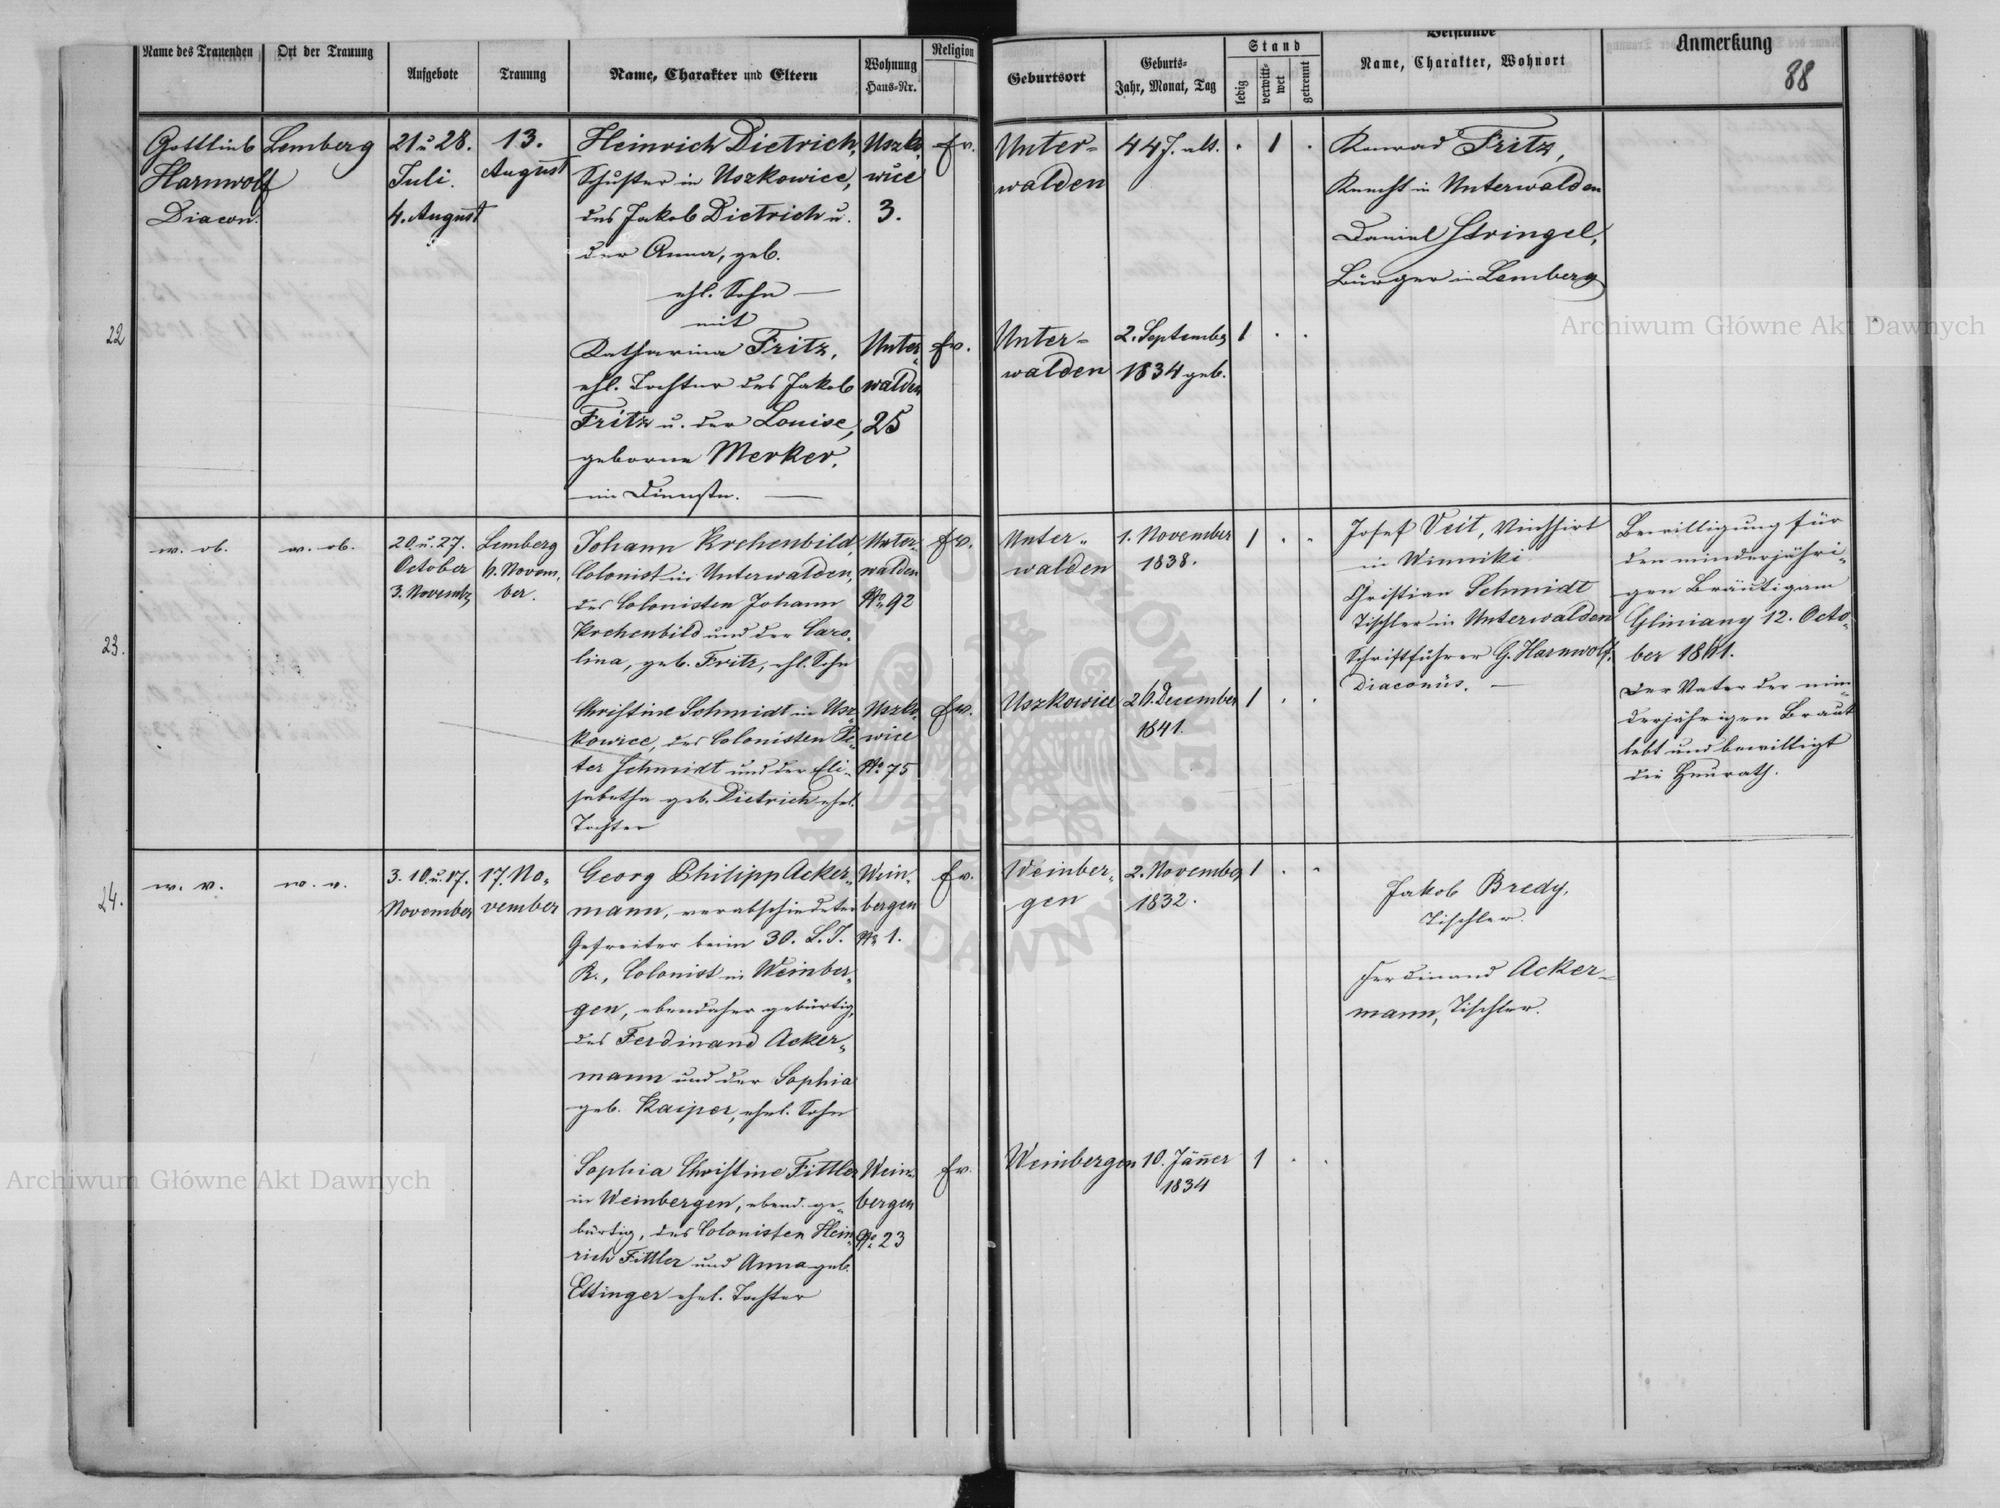 Name des Trauenden
Ort der Trauung
Aufgebote
Trauung
Name, Charakter und Eltern
Wohnung
Haus-Nr.
Religion
Geburtsort
Geburts-
Jahr, Monat, Tag
Stand
ledig
verwitt-
wet
getrennt
Beistände
Name, Charakter, Wohnort
Anmerkung
88
22
Gottlieb
Harnwolf
Diacon.
Lemberg
21 u 28.
Juli.
4. August
13.
August
Heinrich Dietrich,
Schuster in Uszkowice,
des Jakob Dietrich u.
der Anna, geb.
ehl. Sohn —
mit
Katharina Fritz,
ehl. Tochter des Jakob
Fritz u. der Louise,
geborne Merker.
im Dienste. —
Uszko
wice
3.
Unter
walden
25
ev.
ev.
Unter-
walden
44 J. alt.
. 1 .
Unter-
walden
2. September
1834 geb.
1 . .
Konrad Fritz,
Knecht in Unterwalden
Daniel Stringel,
Bürger in Lemberg
23.
w. ob.
w. ob.
20 u. 27.
October
3. Novemb.
Lemberg
6. Novem-
ber.
Johann Krehenbild
Colonist in Unterwalden,
des Colonisten Johann
Krehenbild und der Caro-
lina, geb. Fritz, ehl. Sohn
Christine Schmidt in Usz-
kowice, des Colonisten Pe-
ter Schmidt und der Eli-
sabetha geb. Dietrich ehel.
Tochter
Unter-
walden
No 92
Uszko
wice
No 75
ev.
ev.
Unter-
walden
1. November
1838.
1 . .
Uszkowice
26. December
1841.
1 . .
Josef Veit, Viehhirt
in Winniki
Christian Schmidt
Tischler in Unterwalden
Schriftführer G. Harnwolf,
Diaconus. —
Bewilligung für
den minderjähri-
gen Bräutigam
Gliniany 12. Octo-
ber 1861.
Der Vater der min
derjährigen Braut
lebt und bewilligt
die Heurath.
24.
w. v.
w. v.
3. 10. u. 17.
November
17. No-
vember
Georg Philipp Acker-
mann, verabschiedeter
Gefreiter beim 30. L. I.
R., Colonist in Weinber-
gen, ebendaher gebürtig,
des Ferdinand Acker-
mann und der Sophia
geb. Kaiper, ehel. Sohn
Sophia Christine Fittler
in Weinbergen, ebend. ge-
bürtig, des Colonisten Hein-
rich Fittler und Anna geb.
Ettinger ehel. Tochter
Wein-
bergen
No 1.
Wein-
bergen
No 23
ev.
ev.
Weinber-
gen
2. November
1832.
1 . .
Weinbergen
10. Jänner
1834
1 . .
Jakob Bredy,
Tischler.
Ferdinand Acker-
mann, Tischler.
Archiwum Główne Akt Dawnych
Archiwum Główne Akt Dawnych